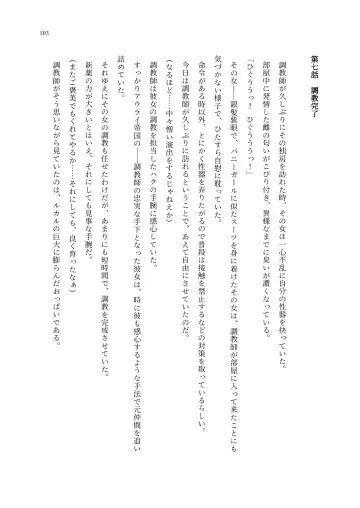 第七話　調教完了
調教師が久しぶりにその独房を訪れた時、その女は一心不乱に自分の性器を抉っていた。
部屋中に発情した雌の匂いがこびり付き、異様なまでに臭いが濃くなっている。
「ひぐううっ！　ひぐうううっ！」
その女――銀髪紫眼で、バニーガールに似たスーツを身に着けたその女は、調教師が部屋に入って来たことにも
気づかない様子で、ひたすら自慰に耽っていた。
命令がある時以外、とにかく性器を弄りたがるので普段は接触を禁止するなどの対策を取っているらしい。
今日は調教師が久しぶりに訪れるということで、あえて自由にさせていたのだ。
（なるほど……中々憎い演出をするじゃねえか）
調教師は彼女の調教を担当したハクの手腕に感心していた。
すっかりアウライ帝国の――調教師の忠実な手下となった彼女は、時に彼も感心するような手法で元仲間を追い
詰めていた。
それゆえにその女の調教も任せたわけだが、あまりにも短時間で、調教を完成させていた。
新薬の力が大きいとはいえ、それにしても見事な手腕だ。
（またご褒美でもくれてやるか……それにしても、良く育ったなぁ）
調教師がそう思いながら見ていたのは、ルカルの巨大に膨らんだおっぱいである。
103